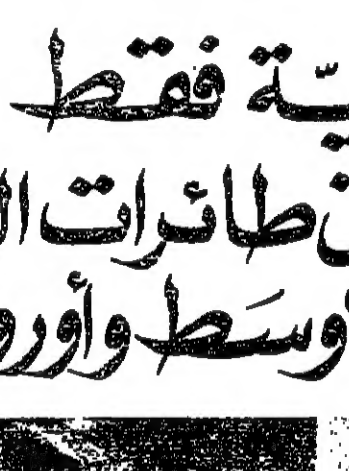 ـيّة فقط
ن طائرات الـ
وسَط وأورو